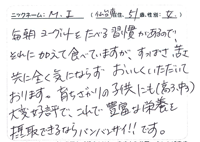 ニックネーム: M.I (仙台県, 51歳, 性別: 女)
毎朝ヨーグルトを食べる習慣があるので
それに加えて食べていますが、すっぱさ、苦さ
共に全く気にならず おいしくいただいて
おります。育ちざかりの子供にも(高3、中3)
大変好評で、これで豊富な栄養を
摂取できるならバンバンザイ!!です。